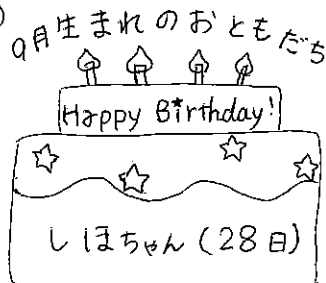 9月生まれのおともだち
Happy Birthday!
しほちゃん(28日)